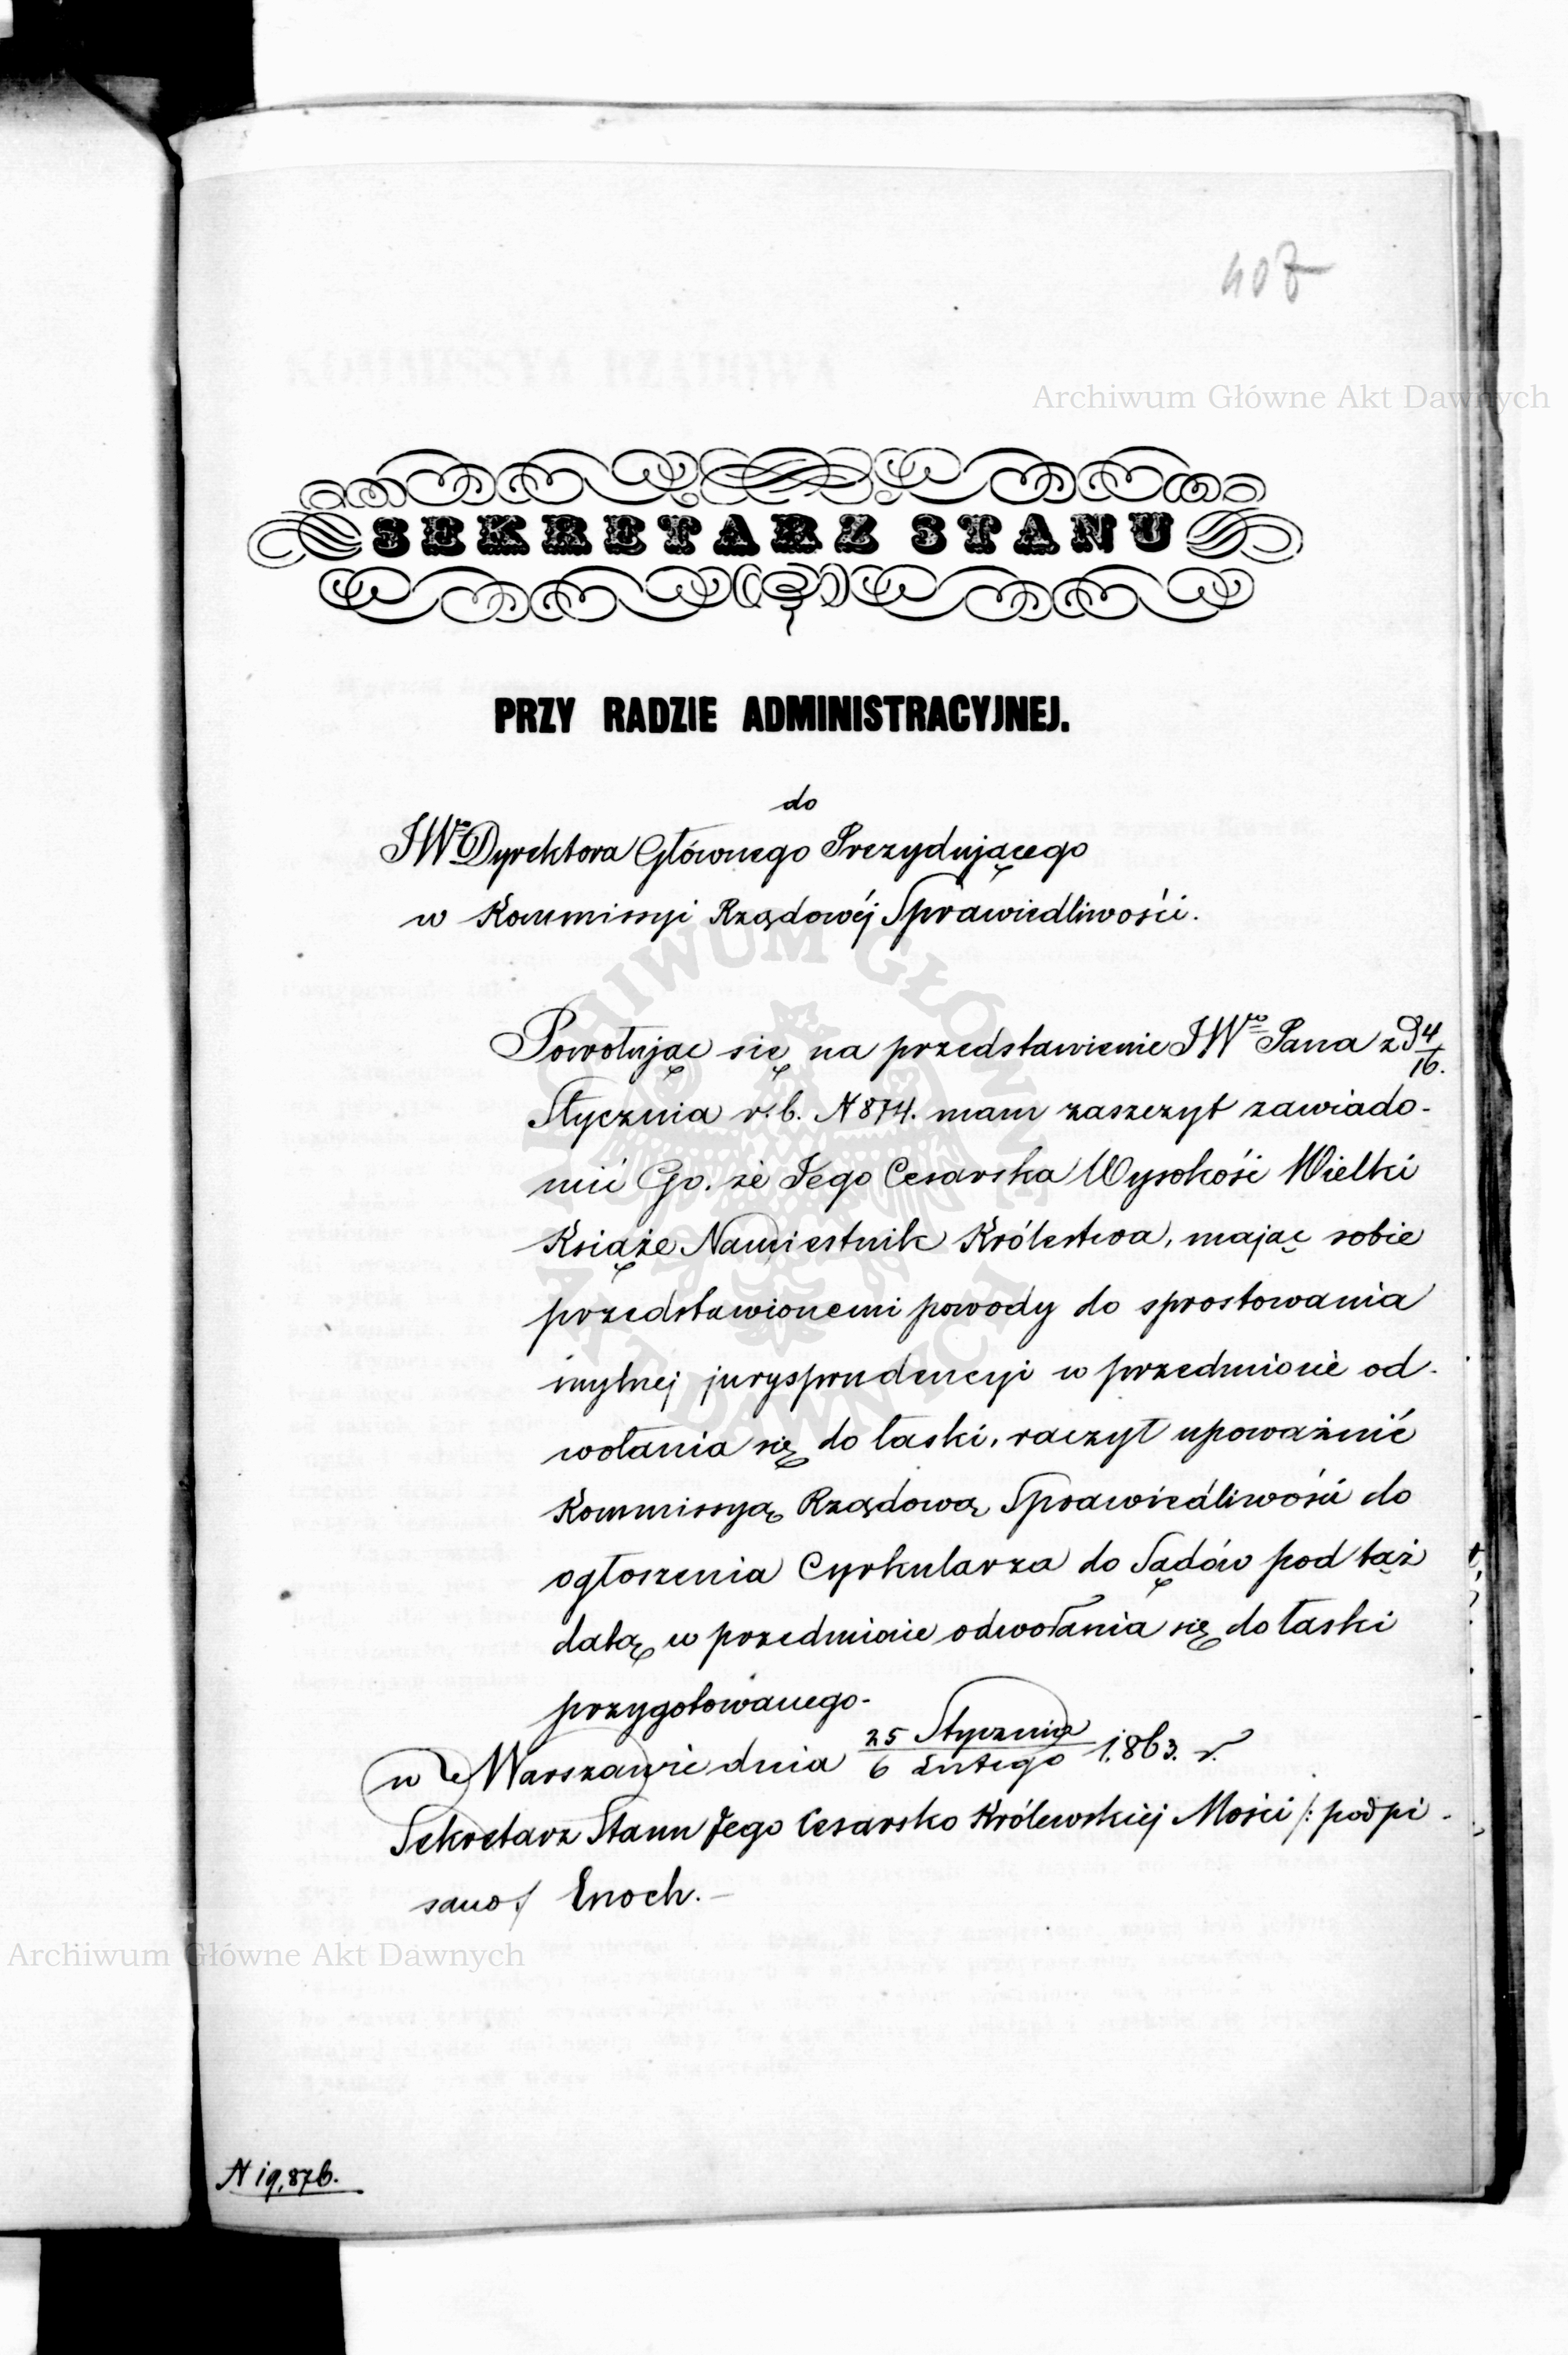 407
SEKRETARZ STANU
PRZY RADZIE ADMINISTRACYJNEJ.
do
JWo Dyrektora Głównego Prezydującego
w Kommissyi Rządowéj Sprawiedliwości.
Powołując się na przedstawienie JWo Pana z D 4/16.
Stycznia r. b. N 874. mam zaszczyt zawiado-
mić Go. że Jego Cesarska Wysokość Wielki
Książe Namiestnik Królestwa, mając sobie
przedstawionemi powody do sprostowania
mylnej jurysprudencyi w przedmiocie od-
wołania się do łaski, raczył upoważnić
Kommissyą Rządową Sprawiedliwości do
ogłoszenia Cyrkularza do Sądów pod taż
datą w przedmiocie odwołania się do łaski
przygotowanego-
w Warszawie dnia 25 Stycznia / 6 Lutego 1863. r.
Sekretarz Stanu Jego Cesarsko Królewskiéj Mości /: podpi-
sano :/ Enoch.-
N 19,876.
Archiwum Główne Akt Dawnych
Archiwum Główne Akt Dawnych
ARCHIWUM GŁÓWNE AKT DAWNYCH